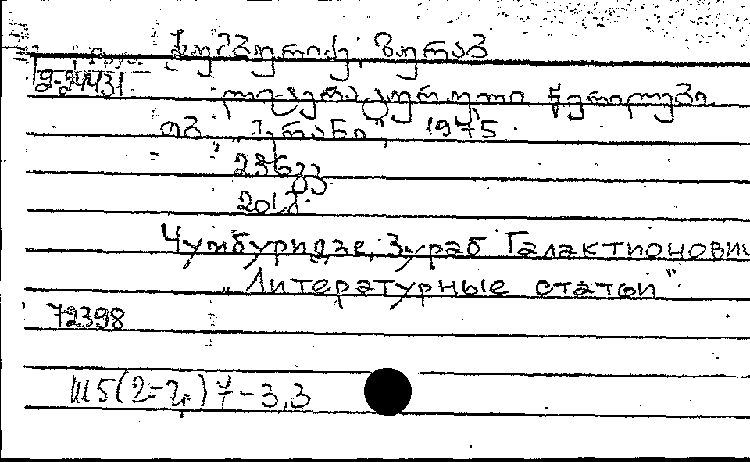 ჭუმბურიძე, ზურაბ
2-24431
ლიტერატურული წერილები.
თბ. "მერანი", 1975.
236 გვ
20
Чумбуридзе, Зураб Галактионович
"Литературные статьи".
72398
Ш5(2=Г)7-3,3